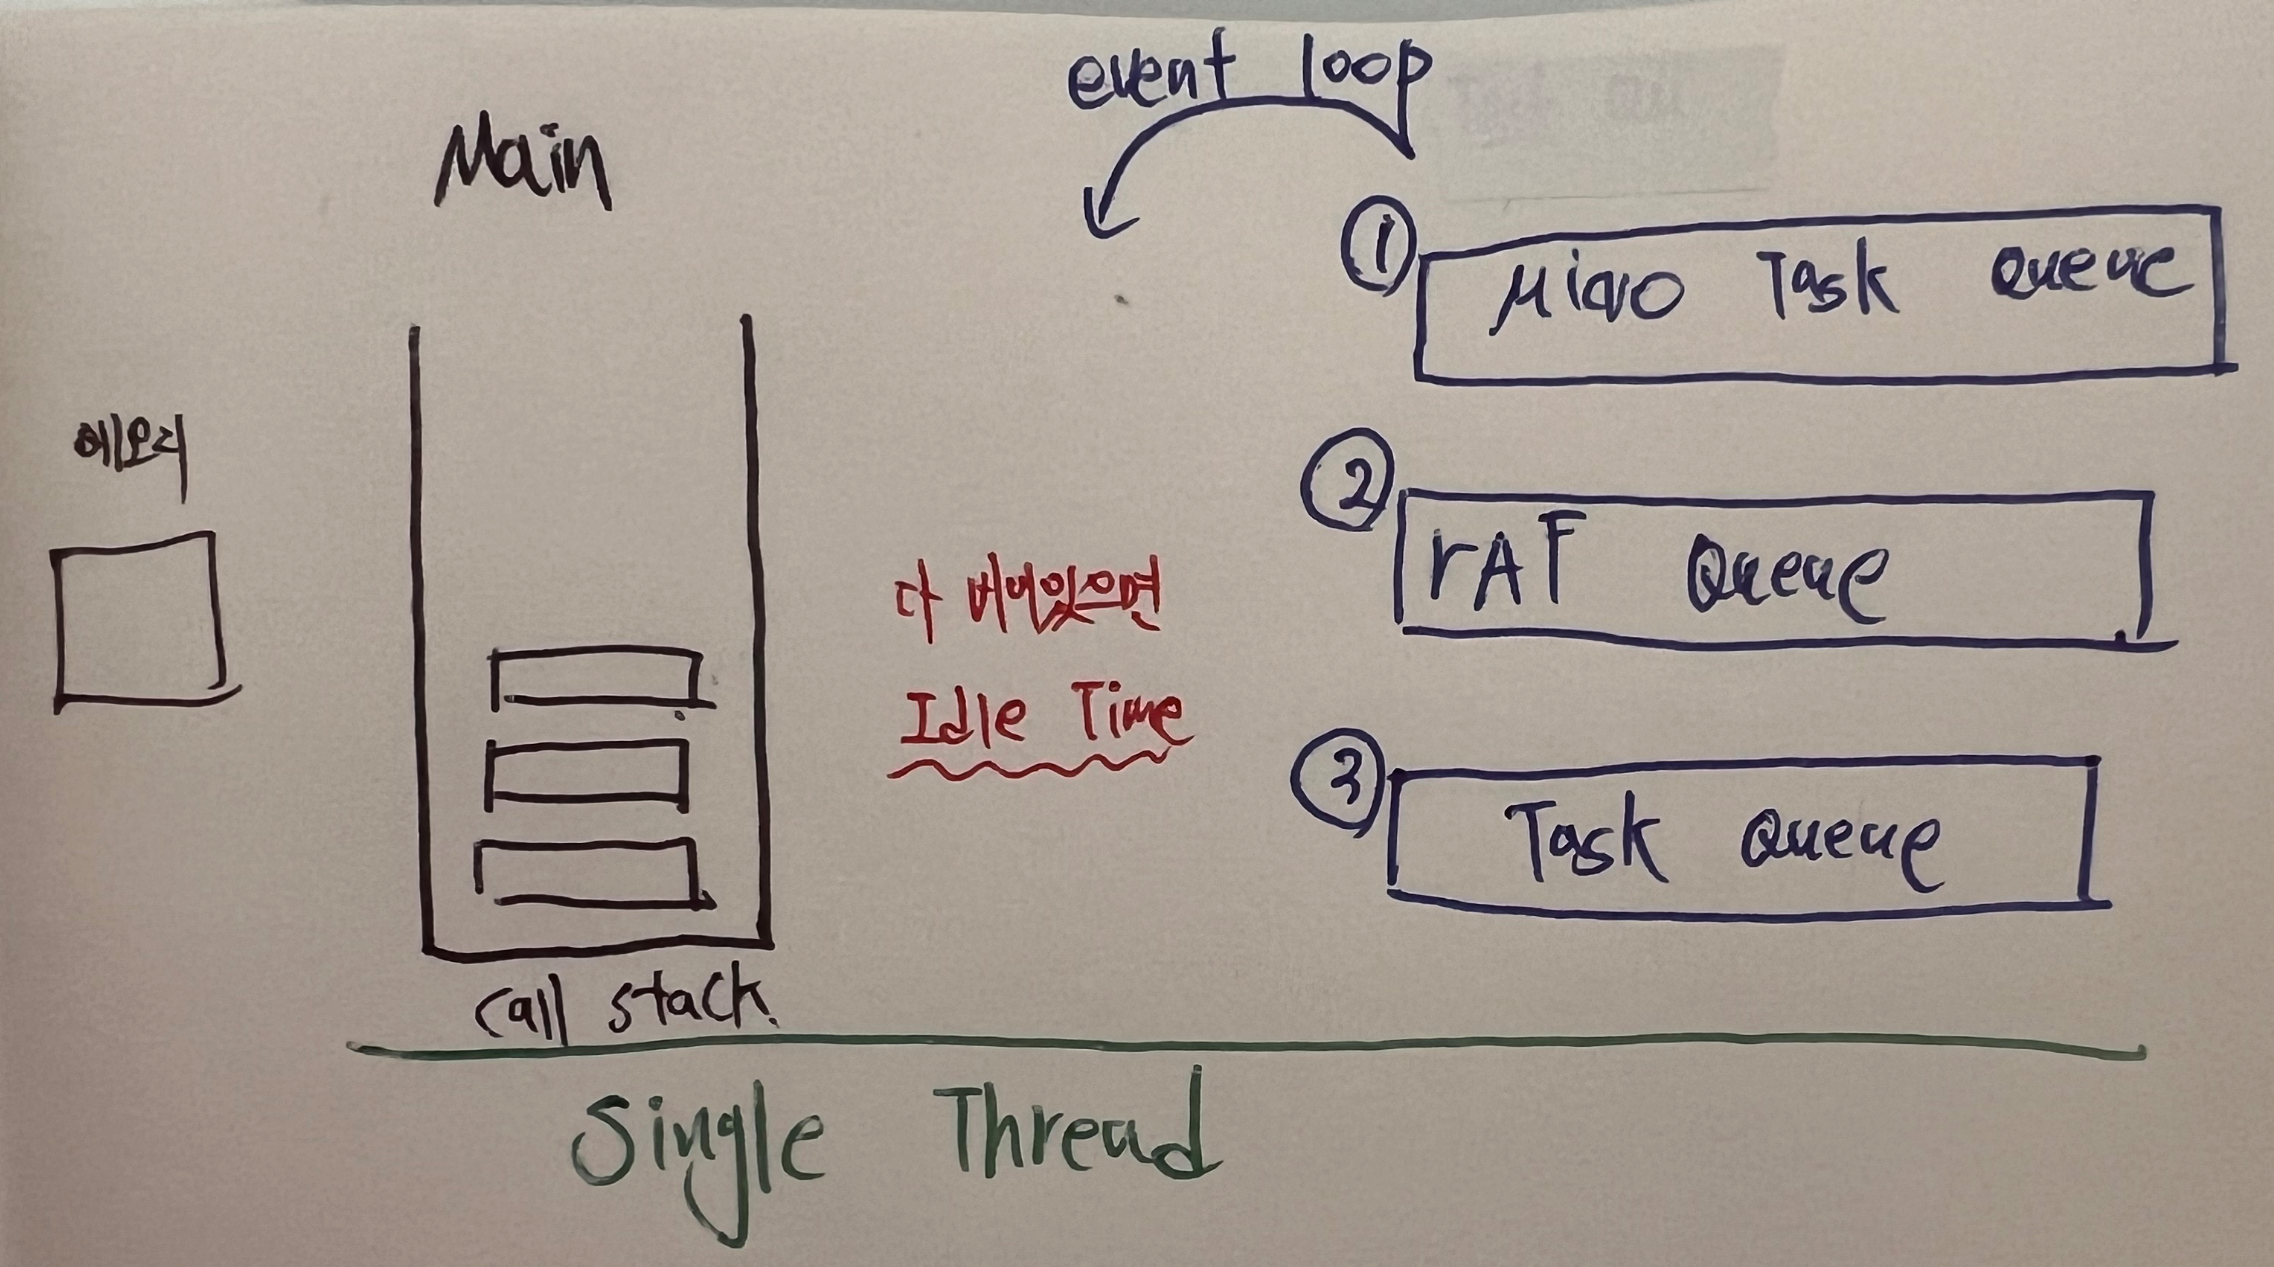 event loop
Main
① Micro Task Queue
메모리
② rAF Queue
다 비어있으면
Idle Time
③ Task Queue
call stack
Single Thread